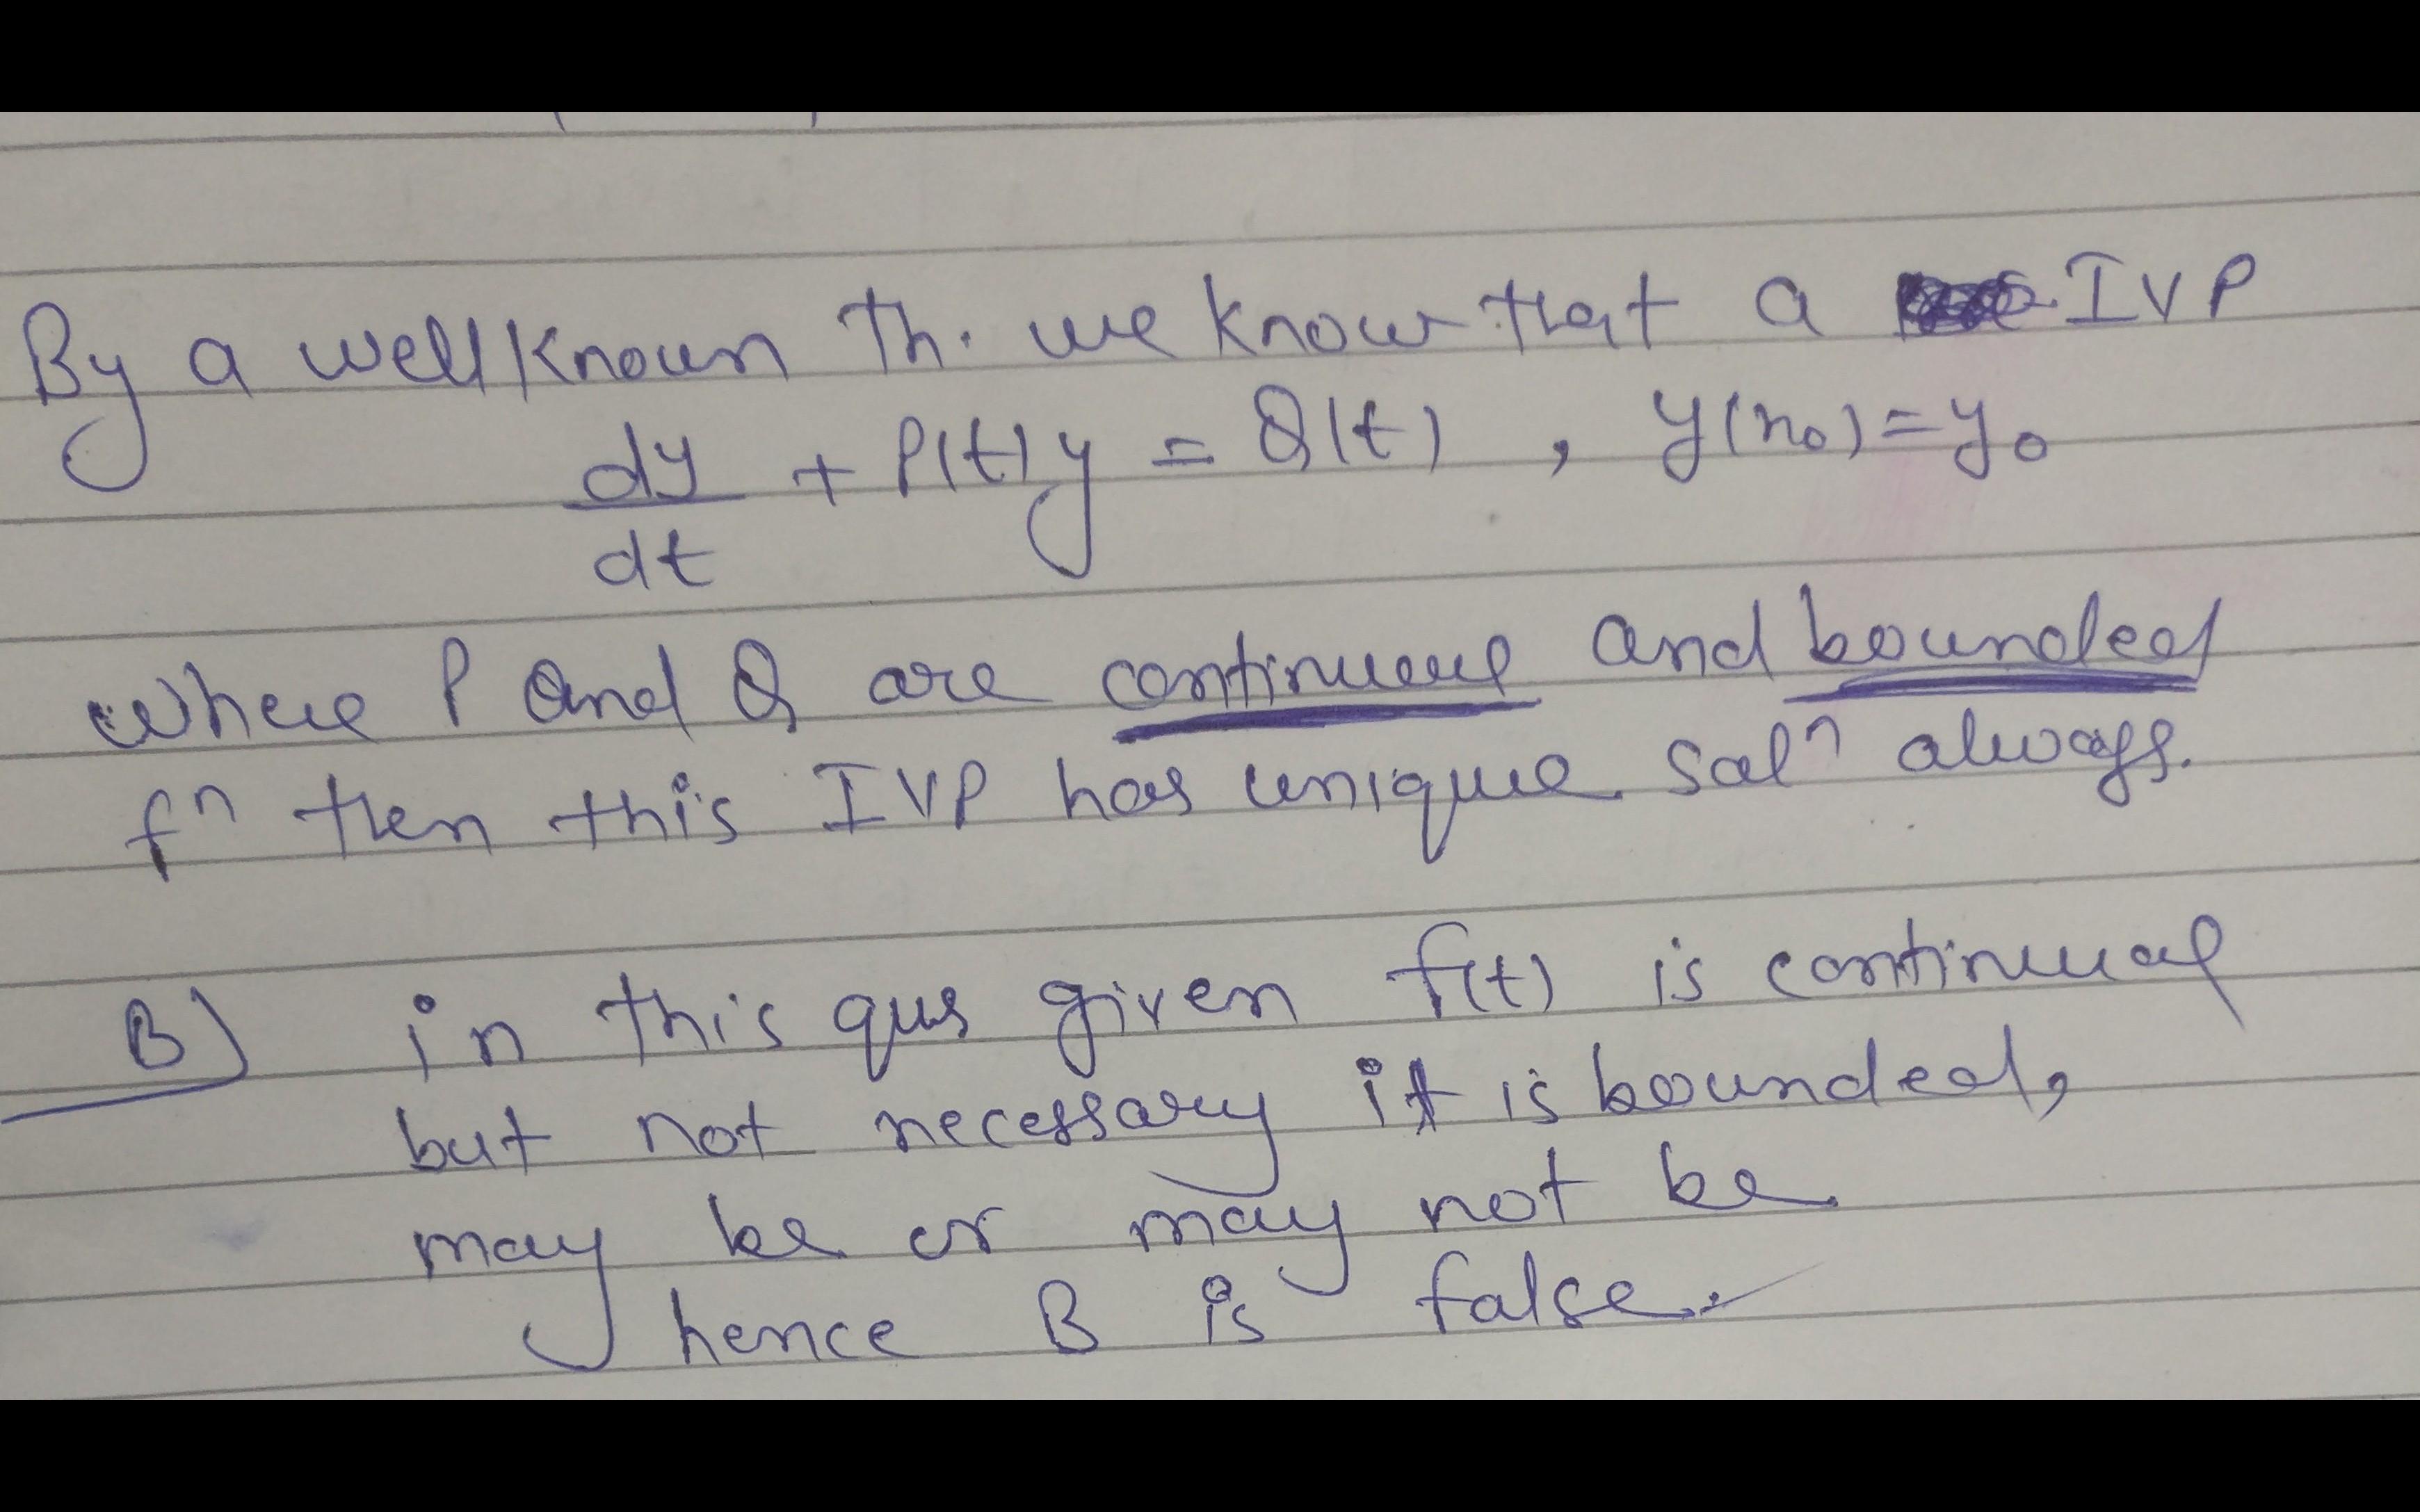 By a wellknown Th. we know that a IVP
dy/dt + P(t)y = Q(t) , y(x₀)=y₀
where P and Q are continuous and bounded
fⁿ then this IVP has unique solⁿ always.
B) in this qus given f(t) is continuous
but not necessary it is bounded,
may be or may not be
hence B is false.